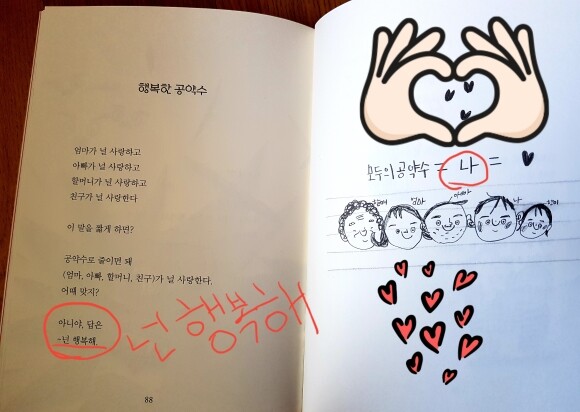 행복한 공약수
엄마가 널 사랑하고
아빠가 널 사랑하고
할머니가 널 사랑하고
친구가 널 사랑한다
이 말을 짧게 하면?
공약수로 줄이면 돼
(엄마, 아빠, 할머니, 친구)가 널 사랑한다.
어때 맞지?
아니야, 답은
-넌 행복해.
넌 행복해
88
모두의 공약수 = 나 =
엄마
나